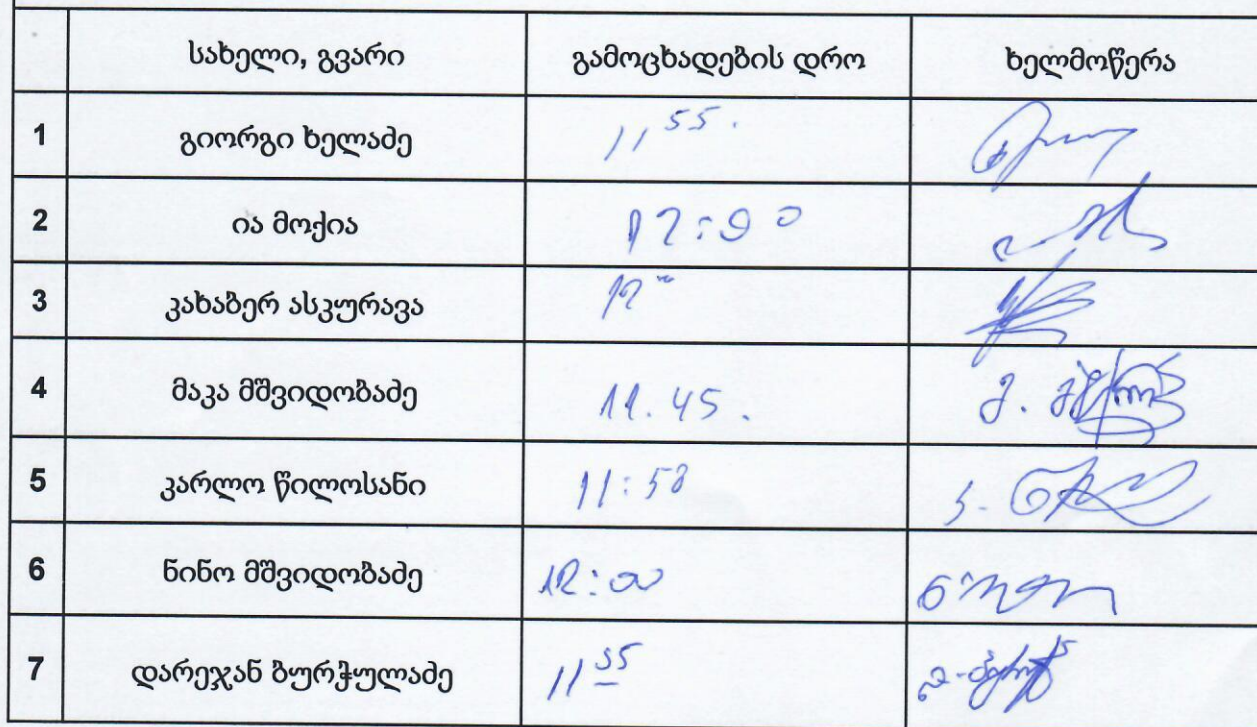 სახელი, გვარი გამოცხადების დრო ხელმოწერა
1 გიორგი ხელაძე 11 55.
2 ია მოქია 12:00
3 კახაბერ ასკურავა
4 მაკა მშვიდობაძე 11.45.
5 კარლო წილოსანი 11:58
6 ნინო მშვიდობაძე 12:00
7 დარეჯან ბურჭულაძე 11 55